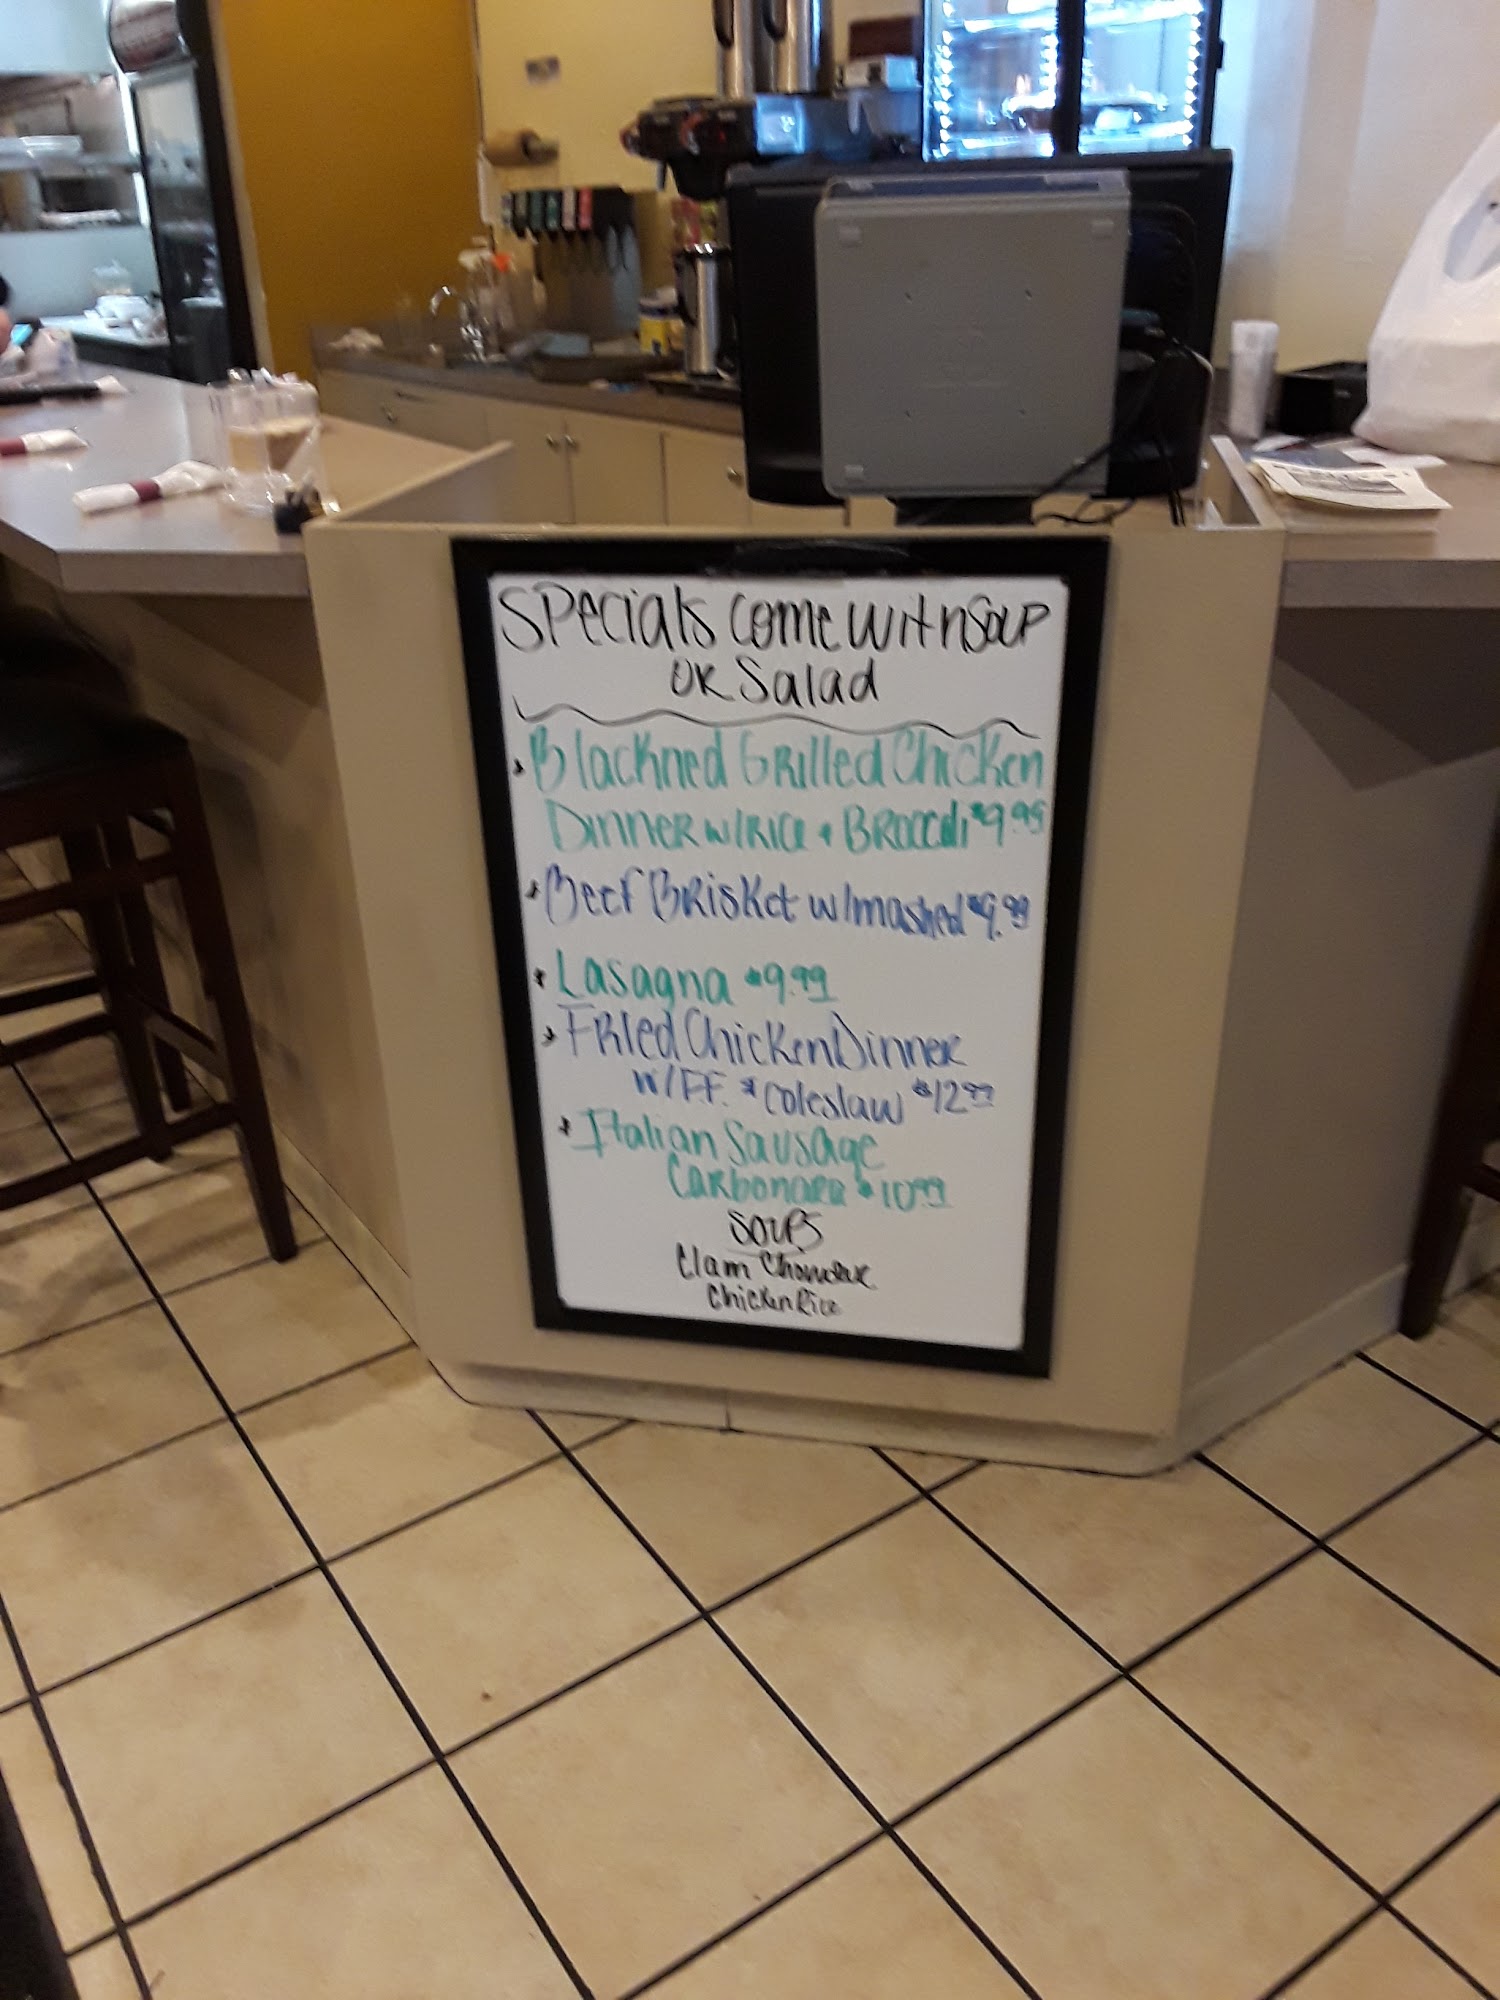 Specials come with soup
or Salad
* Blackned Grilled Chicken
Dinner w/Rice + Broccoli $9.95
* Beef Brisket w/mashed $9.99
* Lasagna $9.99
* Fried Chicken Dinner
w/F.F. * coleslaw $12.99
* Italian Sausage
Carbonara $10.99
Soups
Clam Chowder
Chicken Rice